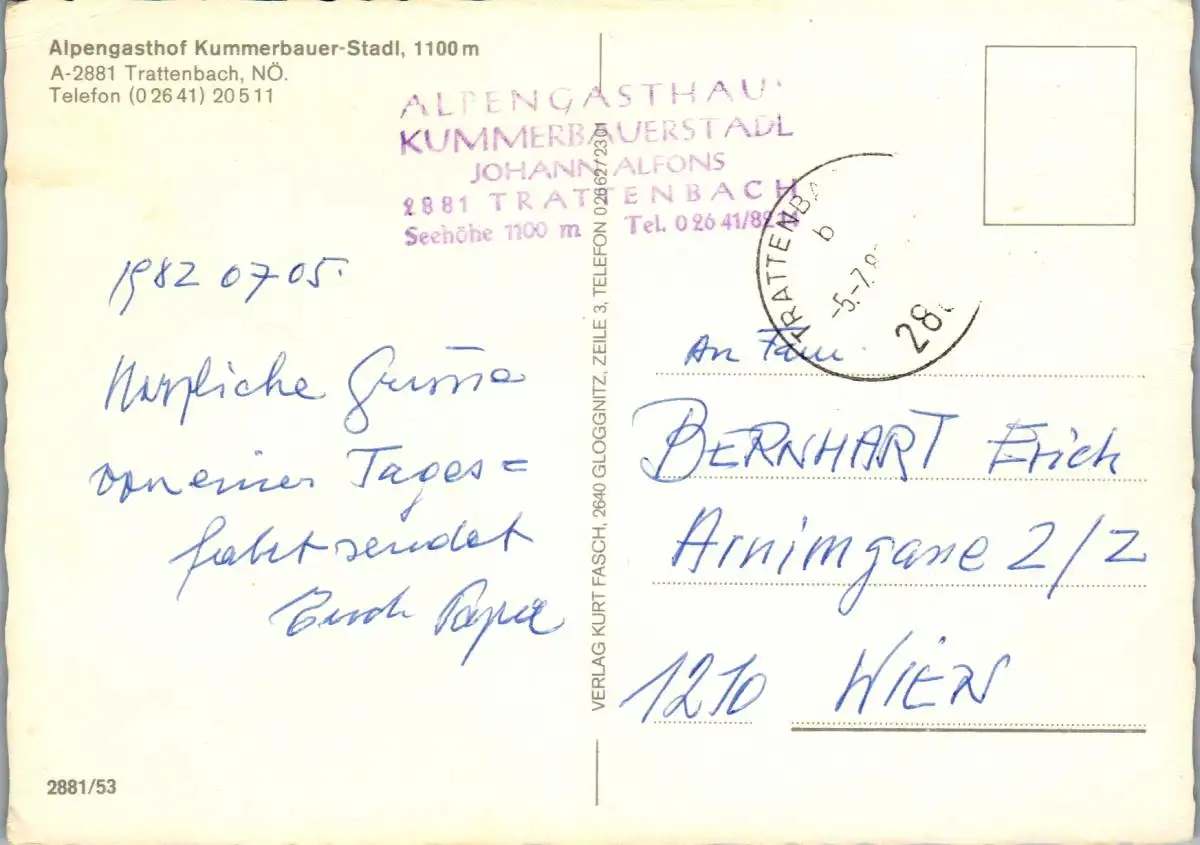 Alpengasthof Kummerbauer-Stadl, 1100 m
A-2881 Trattenbach, NÖ.
Telefon (0 26 41) 20 5 11
ALPENGASTHAU
KUMMERBAUERSTADL
JOHANN ALFONS
2881 TRATTENBACH
Seehöhe 1100 m Tel. 0 26 41/82
TRATTENBA
b
-5.-7.8
28
1982 07 05.
Herzliche Grüsse
von einer Tages=
fahrt sendet
Euch Papa
VERLAG KURT FASCH, 2640 GLOGGNITZ, ZEILE 3, TELEFON 0 26 62/23 01
An Fam
BERNHART Erich
Arnimgasse 2/2
1210 WIEN
2881/53